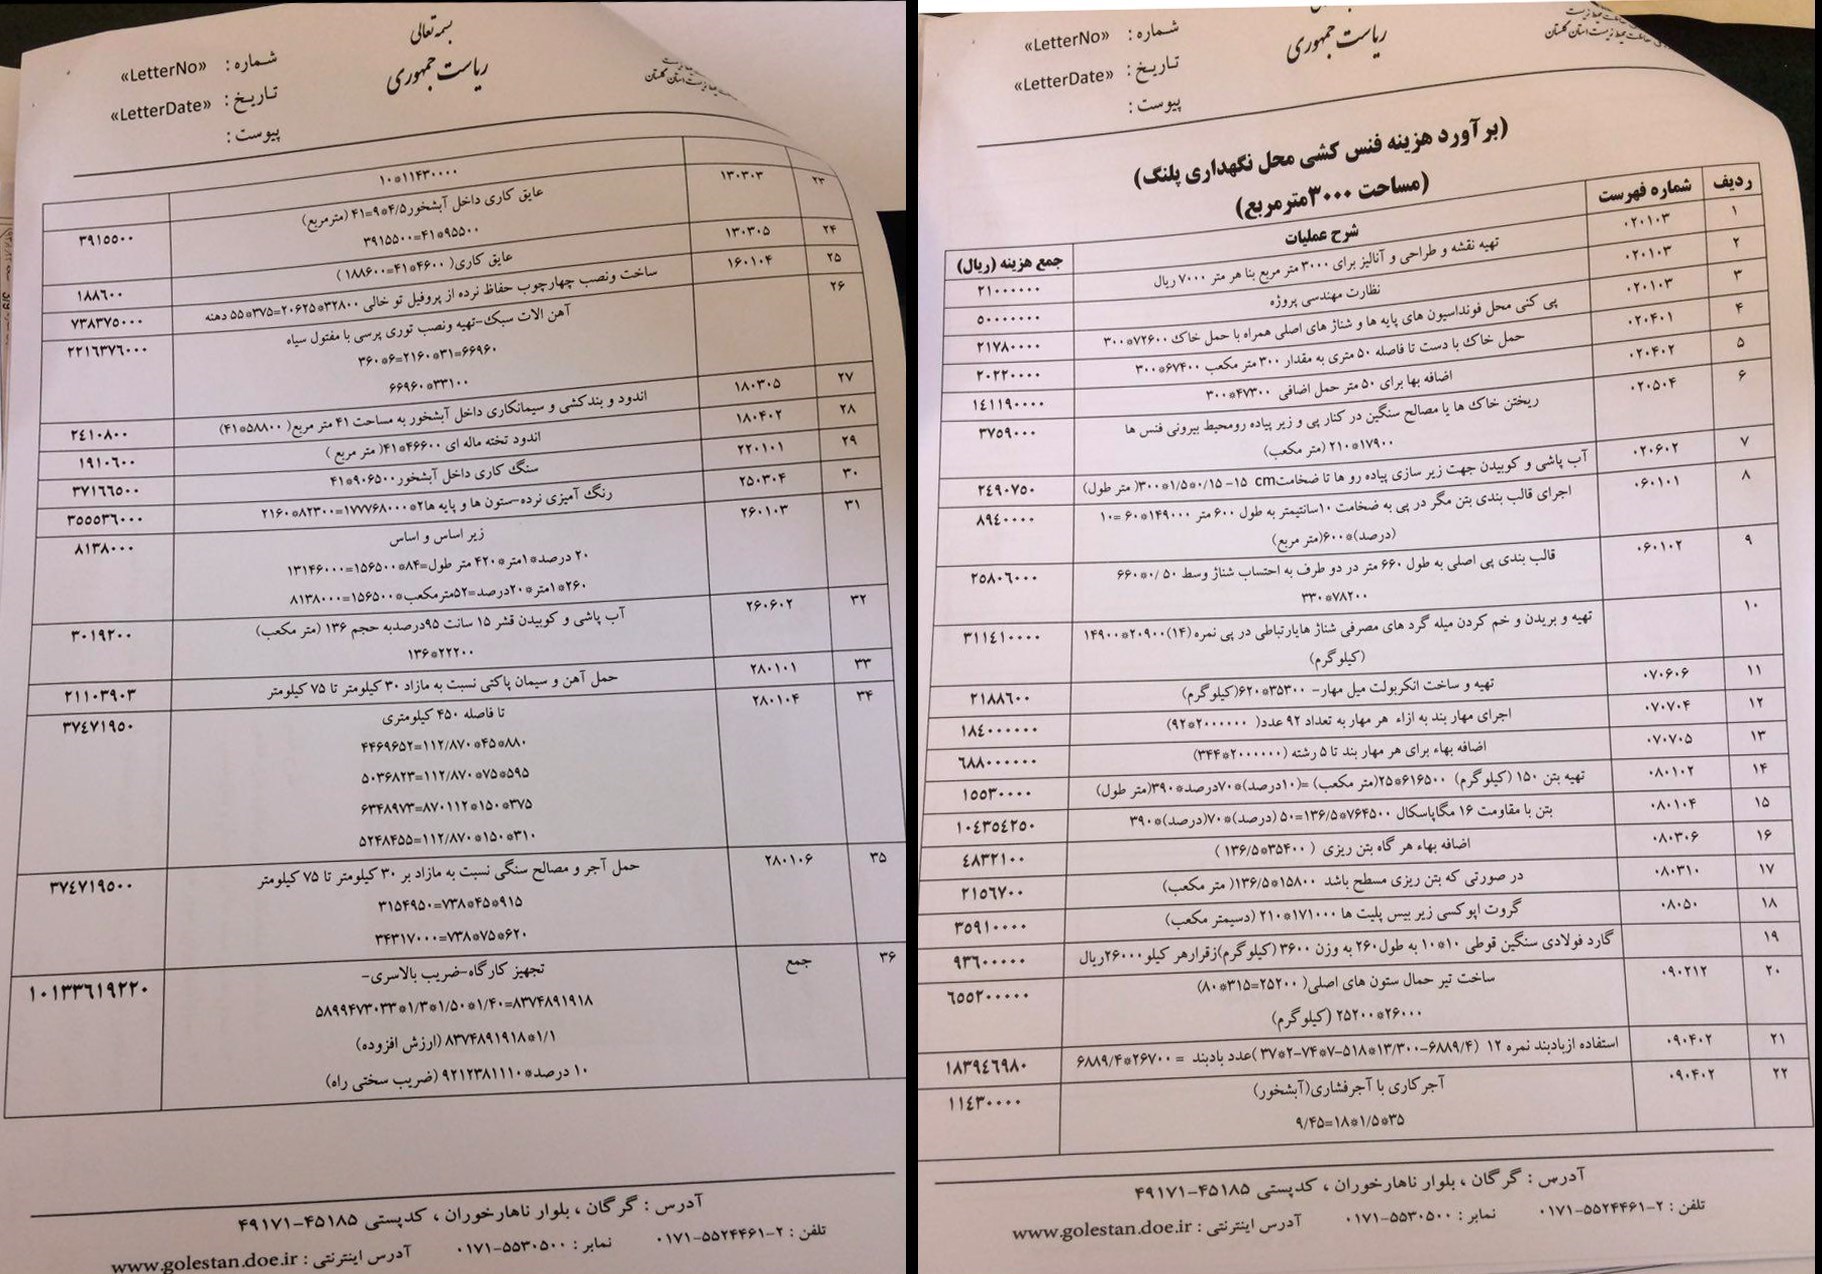 شماره : «LetterNo»
ریاست جمهوری
تاریخ : «LetterDate»
پیوست :
(برآورد هزینه فنس کشی محل نگهداری پلنگ)
(مساحت ۳۰۰۰مترمربع)
ردیف شماره فهرست شرح عملیات جمع هزینه (ریال)
۱ ۰۲۰۱۰۳ تهیه نقشه و طراحی و آنالیز برای ۳۰۰۰ متر مربع بنا هر متر ۷۰۰۰ ریال ۲۱۰۰۰۰۰۰
۲ ۰۲۰۱۰۳ نظارت مهندسی پروژه ۵۰۰۰۰۰۰۰
۳ ۰۲۰۱۰۳ پی کنی محل فونداسیون های پایه ها و شناژ های اصلی همراه با حمل خاک ۷۲۶۰۰*۳۰۰ ۲۱۷۸۰۰۰۰
۴ ۰۲۰۴۰۱ حمل خاک با دست تا فاصله ۵۰ متری به مقدار ۳۰۰ متر مکعب ۶۷۴۰۰*۳۰۰ ۲۰۲۲۰۰۰۰
۵ ۰۲۰۴۰۲ اضافه بها برای ۵۰ متر حمل اضافی ۴۷۳۰۰*۳۰۰ ۱٤۱۱۹۰۰۰۰
۶ ۰۲۰۵۰۴ ریختن خاک ها یا مصالح سنگین در کنار پی و زیر پیاده رومحیط بیرونی فنس ها ۳۷۵۹۰۰۰
۱۷۹۰۰*۲۱۰ (متر مکعب)
۷ ۰۲۰۶۰۲ آب پاشی و کوبیدن جهت زیر سازی پیاده رو ها تا ضخامت۱۵ cm -۰/۱۵*۱/۵*۳۰۰( متر طول) ۲٤۹۰۷۵۰
۸ ۰۶۰۱۰۱ اجرای قالب بندی بتن مگر در پی به ضخامت ۱۰سانتیمتر به طول ۶۰۰ متر ۱۴۹۰۰۰*۶۰ =۱۰ ۸۹٤۰۰۰۰
(درصد)*۶۰۰(متر مربع)
۹ ۰۶۰۱۰۲ قالب بندی پی اصلی به طول ۶۶۰ متر در دو طرف به احتساب شناژ وسط ۰/۵۰*۶۶۰ ۲۵۸۰۶۰۰۰
۷۸۲۰۰*۳۳۰
۱۰ تهیه و بریدن و خم کردن میله گرد های مصرفی شناژ هایارتباطی در پی نمره (۱۴)۲۰۹۰۰*۱۴۹۰۰ ۳۱۱٤۱۰۰۰۰
(کیلوگرم)
۱۱ ۰۷۰۶۰۶ تهیه و ساخت انکربولت میل مهار- ۳۵۳۰۰*۶۲۰(کیلوگرم) ۲۱۸۸٦۰۰
۱۲ ۰۷۰۷۰۴ اجرای مهار بند به ازاء هر مهار به تعداد ۹۲ عدد( ۲۰۰۰۰۰۰*۹۲) ۱۸٤۰۰۰۰۰۰
۱۳ ۰۷۰۷۰۵ اضافه بهاء برای هر مهار بند تا ۵ رشته (۲۰۰۰۰۰۰*۳۴۴) ٦۸۸۰۰۰۰۰۰
۱۴ ۰۸۰۱۰۲ تهیه بتن ۱۵۰ (کیلوگرم) ۶۱۶۵۰۰*۲۵(متر مکعب) =(۱۰درصد)*۷۰درصد*۳۹۰(متر طول) ۱۵۵۳۰۰۰۰
۱۵ ۰۸۰۱۰۴ بتن با مقاومت ۱۶ مگاپاسکال ۷۶۴۵۰۰*۱۳۶/۵=۵۰ (درصد)*۷۰(درصد)*۳۹۰ ۱۰٤۳۵٤۲۵۰
۱۶ ۰۸۰۳۰۶ اضافه بهاء هر گاه بتن ریزی ( ۳۵۴۰۰*۱۳۶/۵ ) ٤۸۳۲۱۰۰
۱۷ ۰۸۰۳۱۰ در صورتی که بتن ریزی مسطح باشد ۱۵۸۰۰*۱۳۶/۵( متر مکعب) ۲۱۵٦۷۰۰
۱۸ ۰۸۰۵۰ گروت اپوکسی زیر بیس پلیت ها ۱۷۱۰۰۰*۲۱۰ (دسیمتر مکعب) ۳۵۹۱۰۰۰۰
۱۹ گارد فولادی سنگین قوطی ۱۰*۱۰ به طول۲۶۰ به وزن ۳۶۰۰ (کیلوگرم)زقرارهر کیلو ۲۶۰۰۰ریال ۹۳٦۰۰۰۰۰
۲۰ ۰۹۰۲۱۲ ساخت تیر حمال ستون های اصلی( ۲۵۲۰۰=۳۱۵*۸۰) ٦۵۵۲۰۰۰۰۰
۲۶۰۰۰*۲۵۲۰۰ (کیلوگرم)
۲۱ ۰۹۰۴۰۲ استفاده ازبادبند نمره ۱۲ (۶۸۸۹/۴-۱۳/۳۰۰*۵۱۸-۷*۷۴-۲*۳۷)عدد بادبند = ۲۶۷۰۰*۶۸۸۹/۴ ۱۸۳۹٤٦۹۸۰
۲۲ ۰۹۰۴۰۲ آجرکاری با آجرفشاری(آبشخور) ۱۱٤۳۰۰۰۰
۳۵*۱/۵*۱۸=۹/۴۵
آدرس : گرگان ، بلوار ناهارخوران ، کدپستی ۴۵۱۸۵-۴۹۱۷۱
تلفن : ۲-۵۵۲۴۴۶۱-۰۱۷۱ نمابر : ۵۵۳۰۵۰۰-۰۱۷۱ آدرس اینترنتی : www.golestan.doe.ir
بسمه تعالی
شماره : «LetterNo»
ریاست جمهوری
تاریخ : «LetterDate»
پیوست :
۱۱۴۳۰۰۰۰*۱۰
۲۳ ۱۳۰۳۰۳ عایق کاری داخل آبشخور۴/۵*۹=۴۱ (مترمربع) ۳۹۱۵۵۰۰
۹۵۵۰۰*۴۱=۳۹۱۵۵۰۰
۲۴ ۱۳۰۳۰۵ عایق کاری( ۴۶۰۰*۴۱=۱۸۸۶۰۰ ) ۱۸۸٦۰۰
۲۵ ۱۶۰۱۰۴ ساخت ونصب چهارچوب حفاظ نرده از پروفیل تو خالی ۳۲۸۰۰*۲۰۶۲۵=۳۷۵*۵۵ دهنه ۷۳۸۳۷۵۰۰۰
۲۶ آهن الات سبک-تهیه ونصب توری پرسی با مفتول سیاه ۲۲۱٦۳۷٦۰۰۰
۶۶۹۶۰=۳۱*۲۱۶۰=۶*۳۶۰
۳۳۱۰۰*۶۶۹۶۰
۲۷ ۱۸۰۳۰۵ اندود و بندکشی و سیمانکاری داخل آبشخور به مساحت ۴۱ متر مربع( ۵۸۸۰۰*۴۱) ۲٤۱۰۸۰۰
۲۸ ۱۸۰۴۰۲ اندود تخته ماله ای ۴۶۶۰۰*۴۱( متر مربع ) ۱۹۱۰٦۰۰
۲۹ ۲۲۰۱۰۱ سنگ کاری داخل آبشخور۹۰۶۵۰۰*۴۱ ۳۷۱٦٦۵۰۰
۳۰ ۲۵۰۳۰۴ رنگ آمیزی نرده-ستون ها و پایه ها۲*۱۷۷۷۶۸۰۰۰=۸۲۳۰۰*۲۱۶۰ ۳۵۵۵۳٦۰۰۰
۳۱ ۲۶۰۱۰۳ زیر اساس و اساس ۸۱۳۸۰۰۰
۲۰ درصد*۱متر*۴۲۰ متر طول=۸۴*۱۵۶۵۰۰=۱۳۱۴۶۰۰۰
۲۶۰*۱متر*۲۰درصد=۵۲مترمکعب*۱۵۶۵۰۰=۸۱۳۸۰۰۰
۳۲ ۲۶۰۶۰۲ آب پاشی و کوبیدن قشر ۱۵ سانت ۹۵درصدبه حجم ۱۳۶ (متر مکعب) ۳۰۱۹۲۰۰
۲۲۲۰۰*۱۳۶
۳۳ ۲۸۰۱۰۱ حمل آهن و سیمان پاکتی نسبت به مازاد ۳۰ کیلومتر تا ۷۵ کیلومتر ۲۱۱۰۳۹۰۳
۳۴ ۲۸۰۱۰۴ تا فاصله ۴۵۰ کیلومتری ۳۷٤۷۱۹۵۰
۸۸۰*۴۵*۱۱۲/۸۷۰=۴۴۶۹۶۵۲
۵۹۵*۷۵*۱۱۲/۸۷۰=۵۰۳۶۸۲۳
۳۷۵*۱۵۰*۸۷۰۱۱۲=۶۳۴۸۹۷۳
۳۱۰*۱۵۰*۱۱۲/۸۷۰=۵۲۴۸۴۵۵
۳۵ ۲۸۰۱۰۶ حمل آجر و مصالح سنگی نسبت به مازاد بر ۳۰ کیلومتر تا ۷۵ کیلومتر ۳۷٤۷۱۹۵۰۰
۹۱۵*۴۵*۷۳۸=۳۱۵۴۹۵۰
۶۲۰*۷۵*۷۳۸=۳۴۳۱۷۰۰۰
۳۶ جمع تجهیز کارگاه-ضریب بالاسری- ۱۰۱۳۳٦۱۹۲۲۰
۵۸۹۹۴۷۳۰۳۳*۱/۳*۱/۵۰*۱/۴۰=۸۳۷۴۸۹۱۹۱۸
۸۳۷۴۸۹۱۹۱۸*۱/۱ (ارزش افزوده)
۱۰ درصد*۹۲۱۲۳۸۱۱۱۰ (ضریب سختی راه)
آدرس : گرگان ، بلوار ناهارخوران ، کدپستی ۴۵۱۸۵-۴۹۱۷۱
تلفن : ۲-۵۵۲۴۴۶۱-۰۱۷۱ نمابر : ۵۵۳۰۵۰۰-۰۱۷۱ آدرس اینترنتی : www.golestan.doe.ir